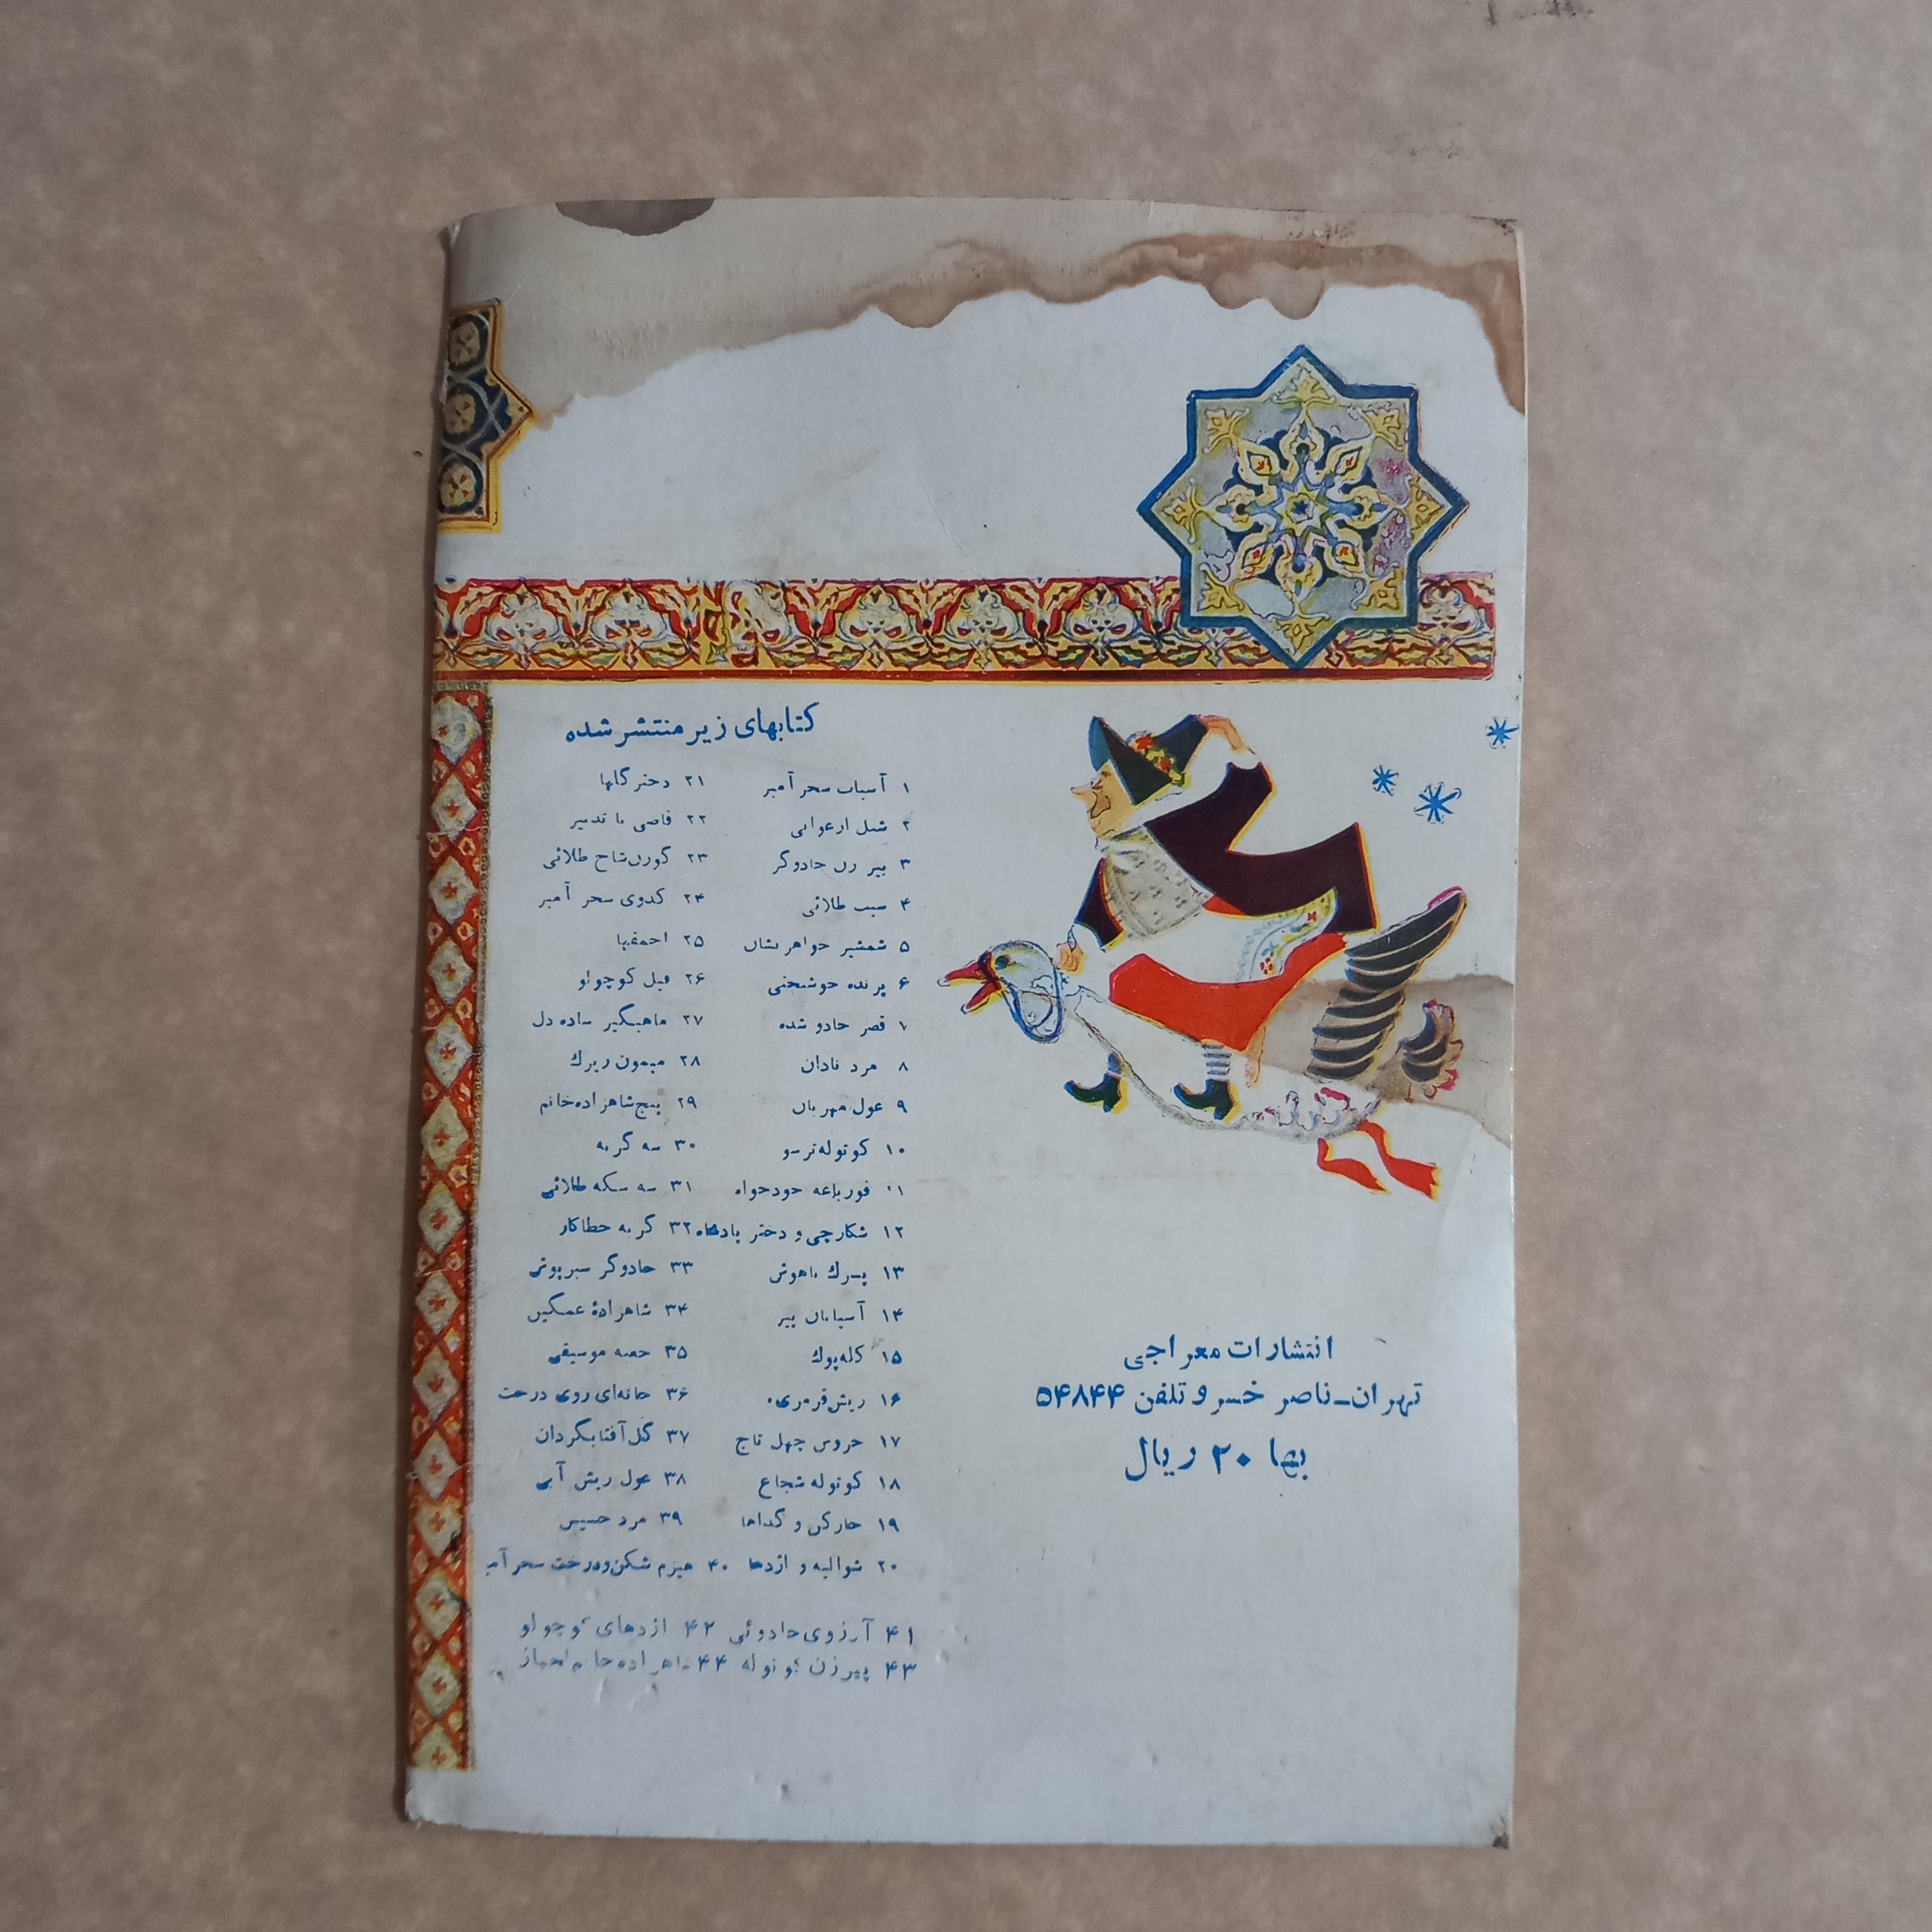 کتابهای زیر منتشر شده
۱ آسیاب سحر آمیز
۲ شنل ارغوانی
۳ پیر زن جادوگر
۴ سیب طلائی
۵ شمشیر جواهر نشان
۶ پرنده خوشبختی
۷ قصر جادو شده
۸ مرد نادان
۹ غول مهربان
۱۰ کوتوله ترسو
۱۱ قورباغه خودخواه
۱۲ شکارچی و دختر پادشاه
۱۳ پسرك باهوش
۱۴ آسیابان پیر
۱۵ کله پوك
۱۶ ریش قرمزی
۱۷ خروس چهل تاج
۱۸ کوتوله شجاع
۱۹ خارکن و گداها
۲۰ شوالیه و اژدها
۲۱ دختر گلها
۲۲ قاضی با تدبیر
۲۳ گوزن شاخ طلائی
۲۴ کدوی سحر آمیز
۲۵ احمقها
۲۶ فیل کوچولو
۲۷ ماهیگیر ساده دل
۲۸ میمون زیرك
۲۹ پنج شاهزاده خانم
۳۰ سه گربه
۳۱ سه سکه طلائی
۳۲ گربه خطاکار
۳۳ جادوگر سبز پوش
۳۴ شاهزادهٔ غمگین
۳۵ جعبه موسیقی
۳۶ خانه‌ای روی درخت
۳۷ گل آفتابگردان
۳۸ غول ریش آبی
۳۹ مرد خسیس
۴۰ هیزم شکن و درخت سحر آمیز
۴۱ آرزوی جادوئی ۴۲ اژدهای کوچولو
۴۳ پیرزن کوتوله ۴۴ شاهزاده خانم
انتشارات معراجی
تهران_ناصر خسرو تلفن ۵۴۸۴۴
بها ۲۰ ریال